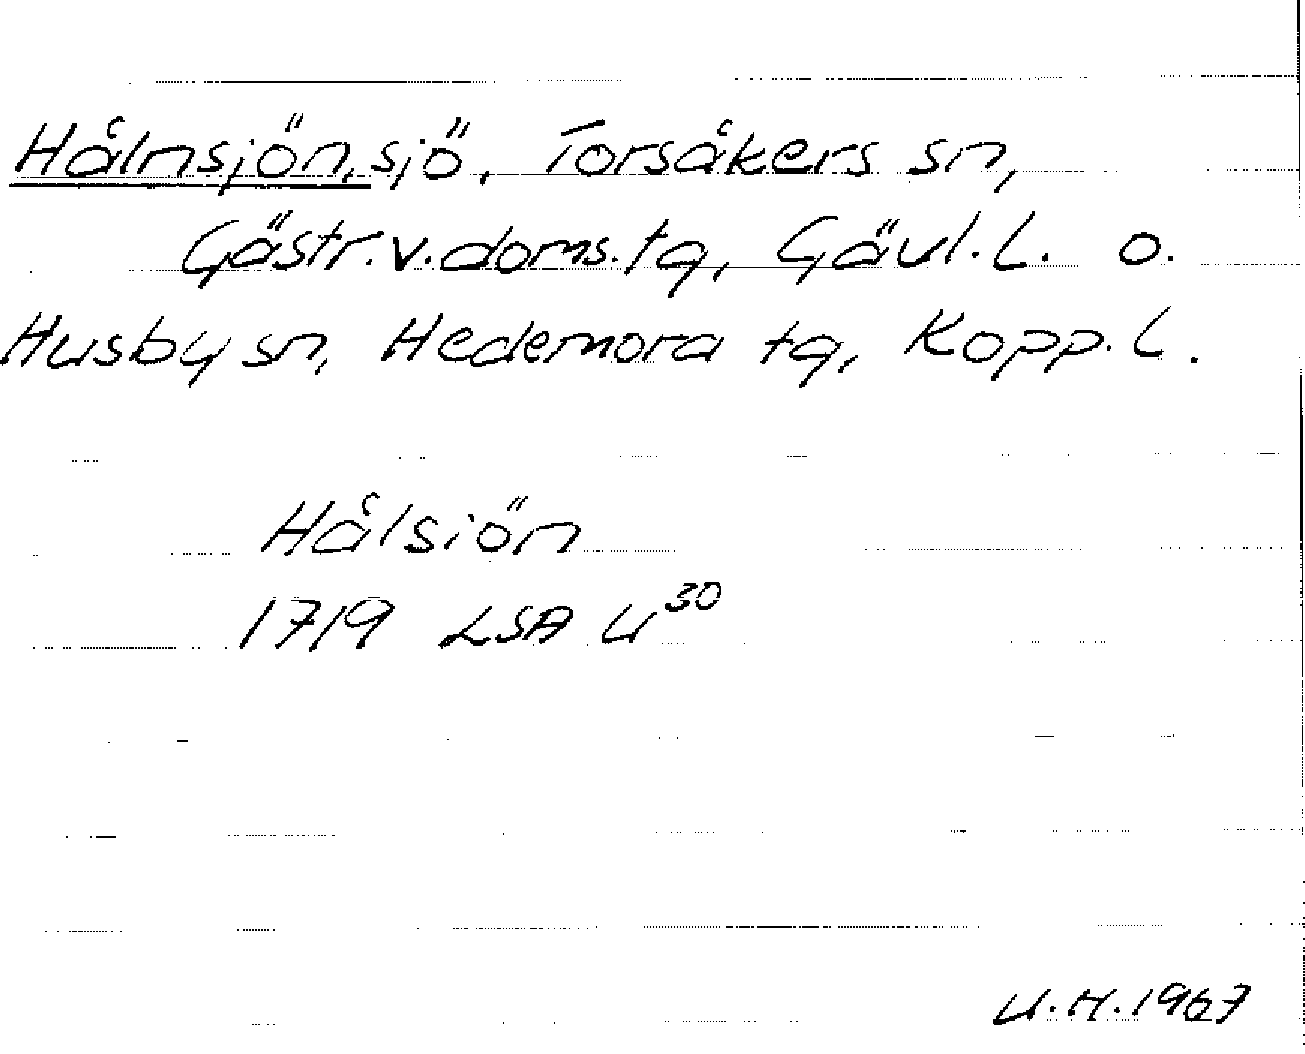 Hålnsjön, sjö, Torsåkers sn,
Gästr.v.doms.tg, Gävl.L. o.
Husby sn, Hedemora tg, Kopp.L.
Hålsiön
1719 LSA U³⁰
U.H.1967